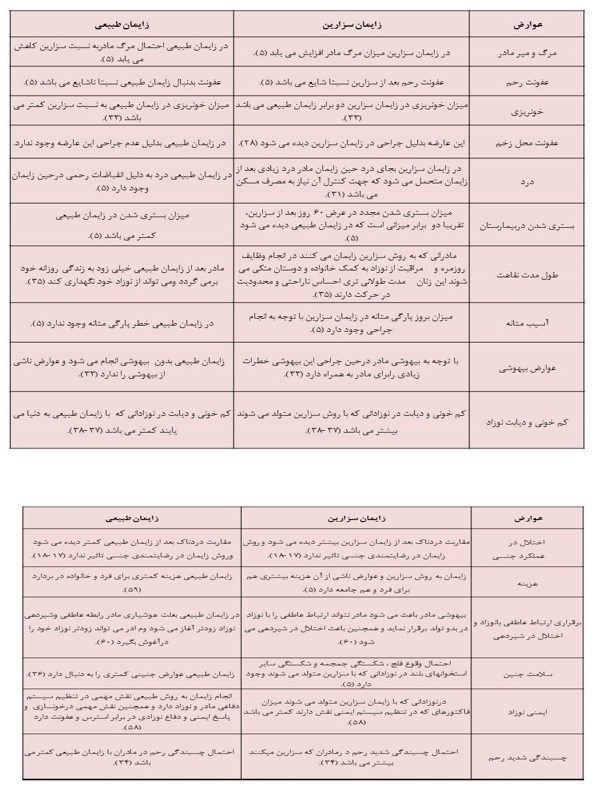 عوارض
زایمان سزارین
زایمان طبیعی
مرگ و میر مادر
در زایمان سزارین میزان مرگ مادر افزایش می یابد (۵).
در زایمان طبیعی احتمال مرگ مادربه نسبت سزارین کاهش
می یابد (۵).
عفونت رحم
عفونت رحم بعد از سزارین نسبتا شایع می باشد (۵)
عفونت بدنبال زایمان طبیعی نسبتا ناشایع می باشد (۵).
خونریزی
میزان خونریزی در زایمان سزارین دو برابر زایمان طبیعی می باشد
(۳۳).
میزان خونریزی در زایمان طبیعی به نسبت سزارین کمتر می
باشد (۳۳).
عفونت محل زخم
این عارضه بدلیل جراحی در زایمان سزارین دیده می شود (۲۸).
در زایمان طبیعی بدلیل عدم جراحی این عارضه وجود ندارد.
درد
در زایمان سزارین بجای درد حین زایمان مادر درد زیادی بعد از
زایمان متحمل می شود که جهت کنترل آن نیاز به مصرف مسکن
می باشد (۳۱).
در زایمان طبیعی درد به دلیل انقباضات رحمی درحین زایمان
وجود دارد (۵).
بستری شدن دربیمارستان
میزان بستری شدن مجدد در عرض ۶۰ روز بعد از سزارین،
تقریبا دو برابر میزانی است که در زایمان طبیعی دیده می شود
(۵).
میزان بستری شدن در زایمان طبیعی
کمتر می باشد (۵).
طول مدت نقاهت
مادرانی که به روش سزارین زایمان می کنند در انجام وظایف
روزمره و مراقبت از نوزاد به کمک خانواده و دوستان متکی می
شوند این زنان مدت طولانی تری احساس ناراحتی و محدودیت
در حرکت دارند (۳۵).
مادر بعد از زایمان طبیعی خیلی زود به زندگی روزانه خود
برمی گردد ومی تواند از نوزاد خود نگهداری کند (۳۵).
آسیب مثانه
میزان بروز پارگی مثانه در زایمان سزارین با توجه به انجام
جراحی وجود دارد (۵).
در زایمان طبیعی خطر پارگی مثانه وجود ندارد (۵).
عوارض بیهوشی
با توجه به بیهوشی مادر درحین جراحی این بیهوشی خطرات
زیادی رابرای مادر به همراه دارد (۳۳).
زایمان طبیعی بدون بیهوشی انجام می شود و عوارض ناشی
از بیهوشی را ندارد (۳۳).
کم خونی و دیابت نوزاد
کم خونی و دیابت در نوزادانی که با روش سزارین متولد می شوند
بیشتر می باشد (۳۷-۳۸).
کم خونی و دیابت در نوزادانی که با زایمان طبیعی به دنیا می
یابند کمتر می باشد (۳۷-۳۸).
عوارض
زایمان سزارین
زایمان طبیعی
اختلال در
عملکرد جنسی
مقاربت دردناک بعد از زایمان سزارین بیشتر دیده می شود و روش
زایمان در رضایتمندی جنسی تاثیر ندارد (۱۷-۱۸).
مقاربت دردناک بعد از زایمان طبیعی کمتر دیده می شود
وروش زایمان در رضایتمندی جنسی تاثیر ندارد (۱۷-۱۸).
هزینه
زایمان به روش سزارین و عوارض ناشی از آن هزینه بیشتری هم
برای فرد و هم جامعه دارد (۵).
زایمان طبیعی هزینه کمتری برای فرد و خانواده در بردارد
(۵۹).
برقراری ارتباط عاطفی بانوزاد و
اختلال در شیردهی
بیهوشی مادر باعث می شود مادر نتواند ارتباط عاطفی را با نوزاد
در بدو تولد برقرار نماید و همچنین باعث اختلال در شیردهی می
شود (۶۰).
در زایمان طبیعی بعلت هوشیاری مادر رابطه عاطفی وشیردهی
نوزاد زودتر آغاز می شود وم ادر می تواند زودتر نوزاد خود را
درآغوش بگیرد (۶۰).
سلامت جنین
احتمال وقوع فلج ، شکستگی جمجمه و شکستگی سایر
استخوانهای بلند در نوزادانی که با سزارین متولد می شوند وجود
دارد (۵).
زایمان طبیعی عوارض جنینی کمتری را به دنبال دارد (۳۶).
ایمنی نوزاد
درنوزادانی که با زایمان سزارین متولد می شوند میزان
فاکتورهای که در تنظیم سیستم ایمنی نقش دارند کمتر می باشد
(۵۸).
انجام زایمان به روش طبیعی نقش مهمی در تنظیم سیستم
دفاعی مادر و نوزاد دارد و همچنین نقش مهمی درخونسازی و
پاسخ ایمنی و دفاع نوزادی در برابر استرس و عفونت دارد
(۵۸).
چسبندگی شدید رحم
احتمال چسبندگی شدید رحم د رمادران که سزارین میکنند
بیشتر می باشد (۳۴).
احتمال چسبندگی رحم در مادران با زایمان طبیعی کمتر می
باشد (۳۴).